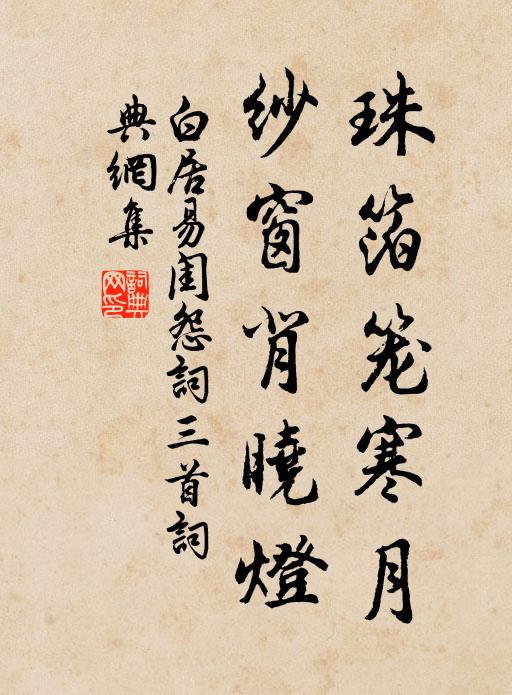 珠箔笼寒月
纱窗背曉燈
白居易闺怨詞三首詞
典網集
詞典网印